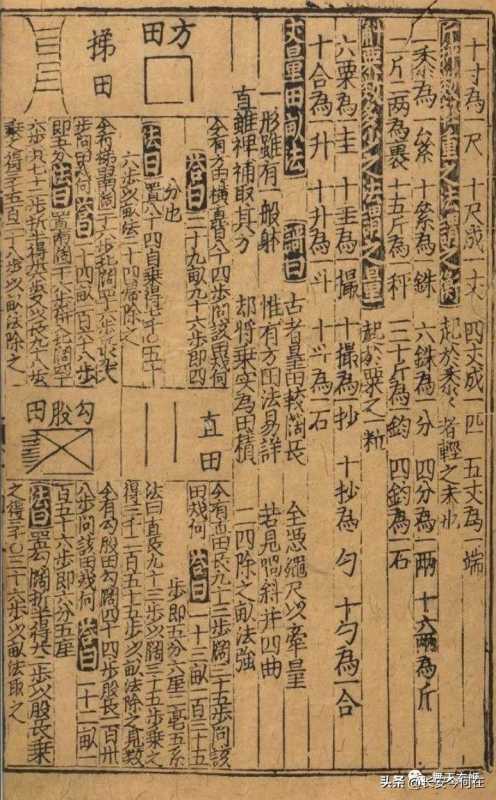 十寸為一尺 十尺成一丈 四丈成一匹 五丈為一端
輕重之法謂之衡 起於黍黍者輕之末也
一黍為一絫 十絫為銖 六銖為一分 四分為一兩 十六兩為斤
二斤二兩為裹 十五斤為科 三十斤為一鈞 四鈞為石
斛粟數多少之法謂之量 起於粟之粒
六粟為圭 十圭為撮 十撮為抄 十抄為勺 十勺為一合
十合為升 十升為一斗 十斗為一石
丈量田畝法 詩曰 古者量田較闊長 全憑繩尺以牽量
一形雖有一般躰 惟有方田法易詳 若見喎斜并凹曲
直雖裨補取其方 却將乗实為田積 二四除之畝法強
方田
今有方田橫直八十四步問該田幾何
荅曰 二十九畝九十六步即四
分也
法曰 置八十四自乗得七千〇五十
六步以畝法二十四歸除之
梯田
今有梯田南闊二十步北闊四十步長
步問田幾何 荅曰 一十四畝一百六十八步
法曰 置南闊二十步併北闊四十
步九七十二步折半得三十六步以長九
乗之得三千五百二十八步以畝法除之
直田
今有直田長九十三步闊三十五步問該
田幾何 荅曰 一十三畝一百三十五
步即五分六星二毫五系
法曰直長九十三步以闊三十五步乗之
得三千二百五十五步以畝法除之見數
勾股田
今有勾股田勾闊四十四步股長一百卅
八步問該田幾何 荅曰 一十二畝一
百五十六步即六分五星
法曰 置勾闊折半得廿二步以股長乗
之得三千〇三十六步以畝法取之
头条 @长安今何在